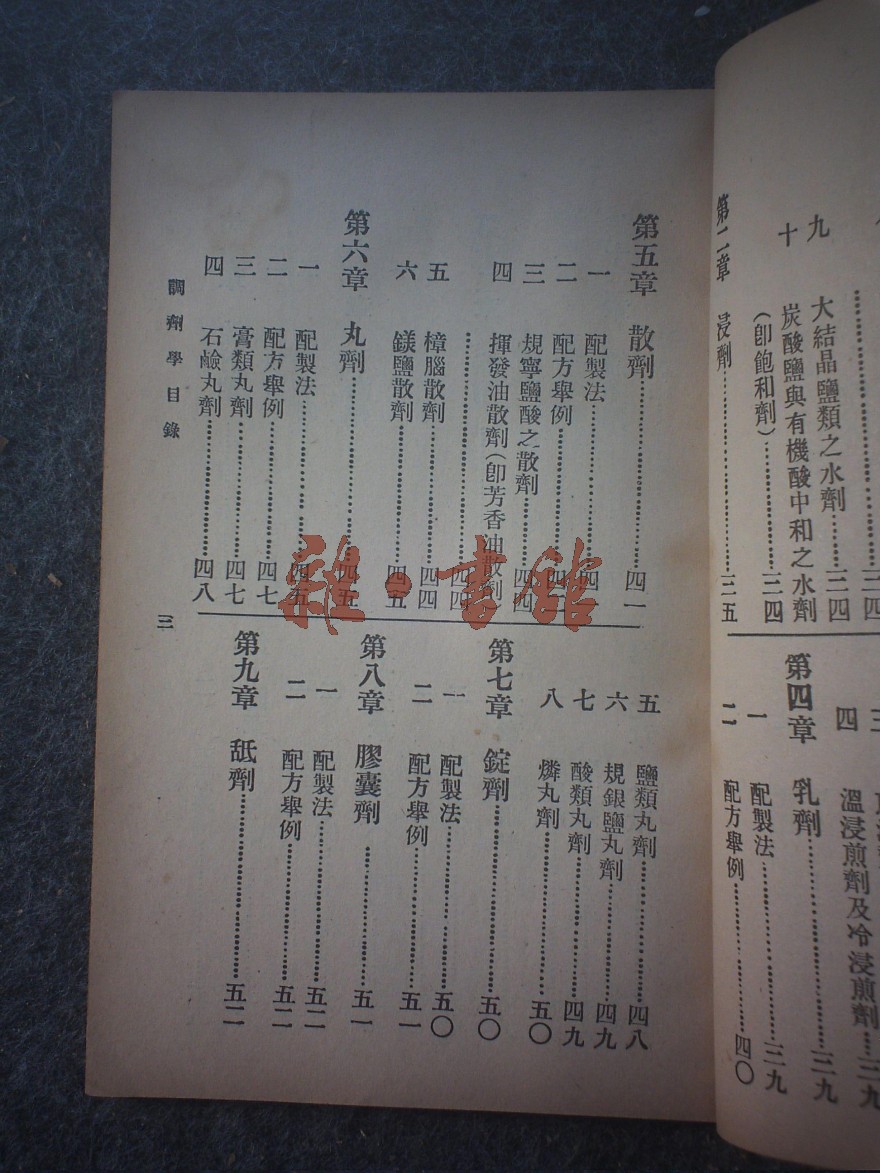 九 大結晶鹽類之水劑……三四
十 炭酸鹽與有機酸中和之水劑
（卽飽和劑）……三四
第二章 浸劑……三五
溫浸煎劑及冷浸煎劑…三九
第四章 乳劑……三九
一 配製法……三九
二 配方舉例……四〇
第五章 散劑……四一
一 配製法……四一
二 配方舉例……四二
三 規寧鹽酸之散劑……四四
四 揮發油散劑（卽芳香油散劑）
……四四
五 樟腦散劑……四四
六 鎂鹽散劑……四五
第六章 丸劑……四五
一 配製法……四五
二 配方舉例……四七
三 膏類丸劑……四七
四 石鹼丸劑……四八
五 鹽類丸劑……四八
六 規銀鹽丸劑……四九
七 酸類丸劑……四九
八 燐丸劑……五〇
第七章 錠劑……五〇
一 配製法……五〇
二 配方舉例……五一
第八章 膠囊劑……五一
一 配製法……五二
二 配方舉例……五二
第九章 舐劑……五二
調劑學目錄
三
雜·書館